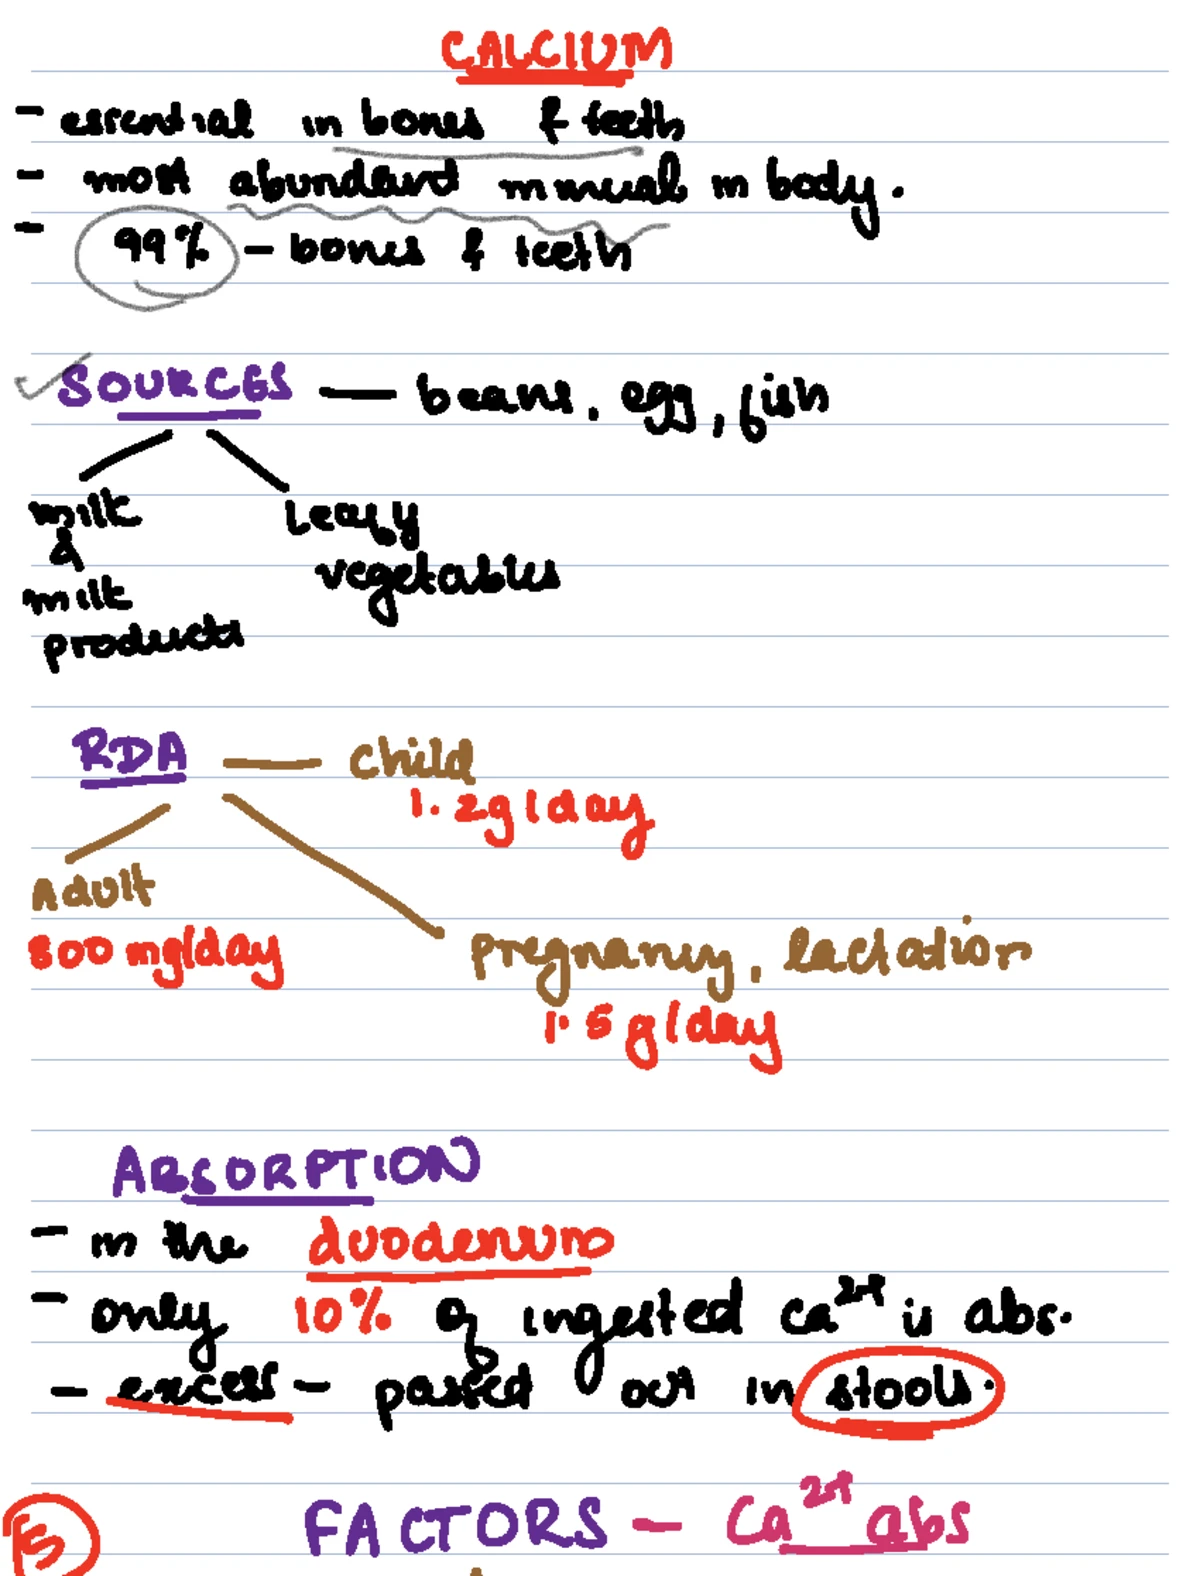 CALCIUM
- essential in bones & teeth
- most abundant mineral in body.
- 99% - bones & teeth
SOURCES — beans, egg, fish
milk & milk products
Leafy vegetables
RDA — child
1.2g/day
Adult
800 mg/day
pregnancy, lactation
1.5 g/day
ABSORPTION
- in the duodenum
- only 10% of ingested Ca2+ is abs.
- excess - passed out in stools.
FACTORS - Ca2+ abs